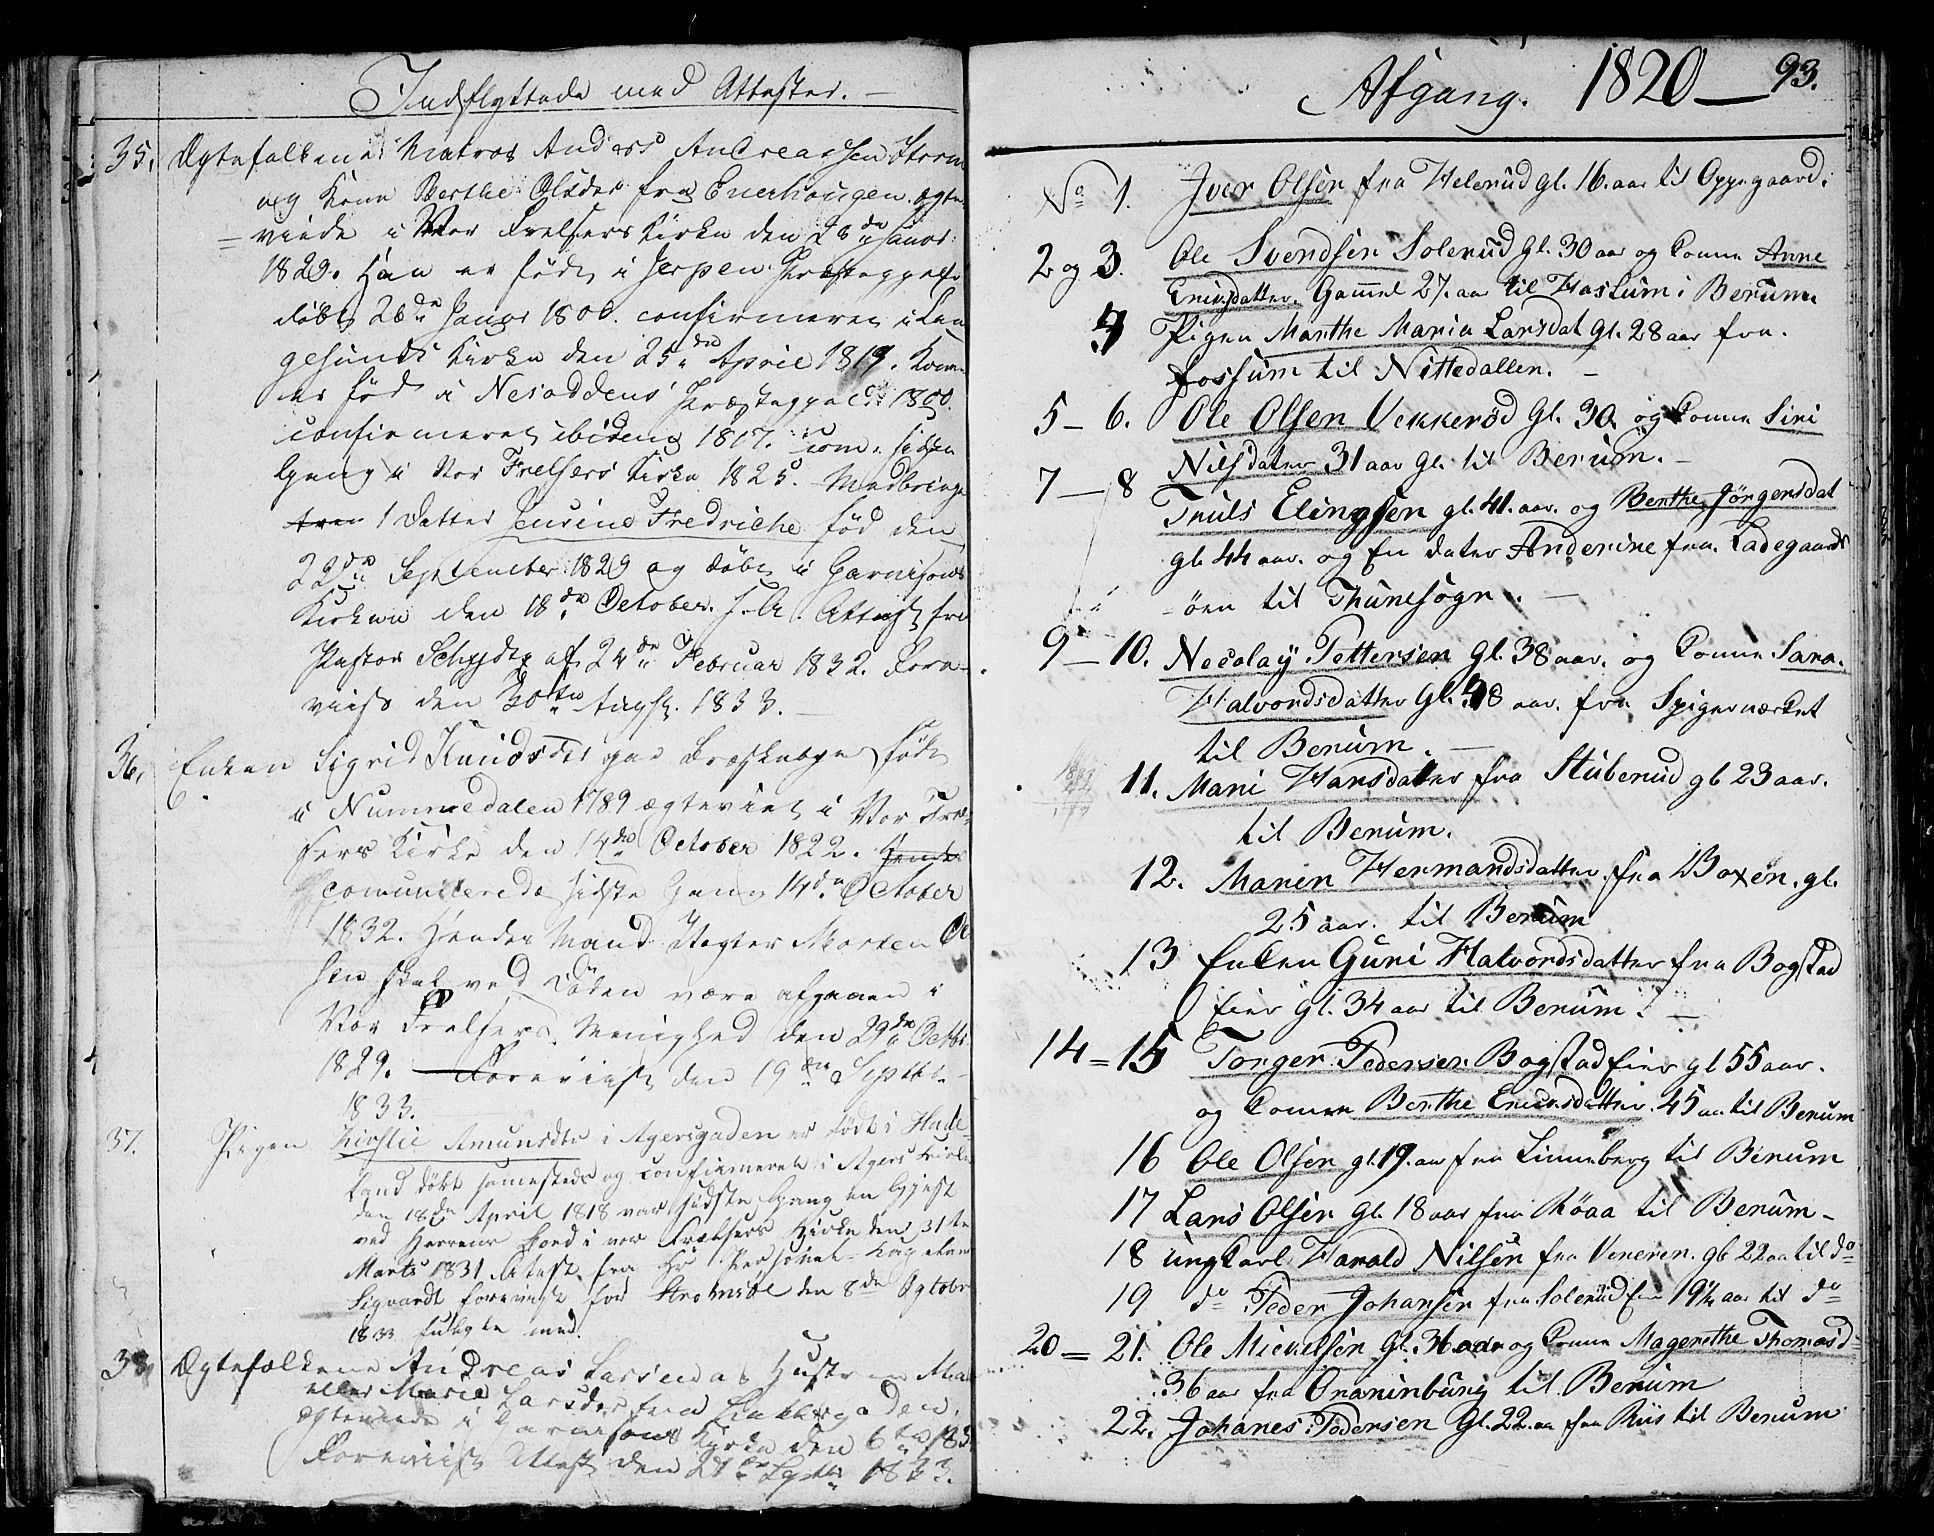 Indflyttede med Attester. —
35. Ægtefolkene Matros Anders Andreassen
og Kone Berthe Olsdr fra Enerhougen ægte-
viede i Vor Frelsers Kirke den 28de Janr
1829. Han er født i Jerpen Præstegjeld
døbt 26de Januar 1800. confirmeret i Lan
gesunds Kirke den 25de April 1819. Konen
er født i Nesoddens Præstegjeld 1800
confirmeret ibidem 1817. com. sidste
Gang i Vor Frelsers Kirke 1825. Medbringe
1 Datter Jensine Fredriche født den
22de September 1829 og døbt i Garnisons
Kirken den 18de October. s. A. Attest fra
Pastor Schydtz af 24de Februar 1832. Fore-
viist den 30te Augst. 1833. —
36. Enken Sigrid Knudsdtr paa født
i Nummedalen 1789 ægteviet i Vor Frel-
sers Kirke den 14de October 1822.
comunicerede sidste Gang 14de October
1832. Hendes Mand Morten Ol
sen skal ved Døden være afgaaen i
Vor Frelsers Menighed den 29de Octbr
1829. — Foreviist den 19de Septbr. —
1833.
37. Pigen Kirstie Amundsdtr i Agersgaden er født i Hade-
land døbt sammesteds og confirmeret i Agers Kirke
den 18de April 1818 var sidste Gang en Gjest
ved Herrens Bord i vor Frælsers Kirke den 31te
Marts 1831 Attest fra Hr Personel Kapelan
Sigvardt foreviist for den 8de Octobr
1833 fulgte med.
38. Ægtefolkene Andreas Larsen og Hustrue
eller Marie Larsdtr fra
ægteviede i Garnisons Kirke den 6te
Foreviist Attest den 27de Septbr 1833.
Afgang. 1820 — 93.
No 1. Iver Olsen fra Helerud gl. 16. aar til Oppegaard.
2 og 3. Ole Svendsen Solerud gl. 30 aar og Konne Anne
Ericsdatter. Gammel 27. aar til Haslum i Berum.
4 Pigen Marthe Maria Larsdat gl. 28 aar fra.
Fossum til Nittedallen. —
5 — 6. Ole Olsen Vekkerød gl. 30. og Konne Siri
Nilsdater 31 aar gl. til Berum. —
7 — 8 Truls Elingsen gl. 41. aar. og Berthe Jörgensdat
gl. 44 aar. og En dater Anderine fra Ladegaards
-öen til Thunesogn. —
9 — 10. Necolay Pettersen gl. 38 aar. og Konne Sara.
Halvordsdatter gl. 48 aar. fra Spigerværket
til Berum. —
11. Mari Hansdatter fra Stuberud gl 23 aar.
til Berum.
12. Maren Hermandsdatter fra Boxen. gl.
25 aar. til Berum
13 Enken Guri Halvordsdatter fra Bogstad
Eier gl. 34 aar til Berum. —
14 = 15 Torger Pedersen Bogstad Eier gl 55 aar.
og Konen Berthe Ericsdatter. 45 aar til Berum
16 Ole Olsen gl. 19. aar fra Linneberg til Berum
17 Lars Olsen gl. 18 aar fra Röaa til Berum —
18 ungkarl Harald Nilsen fra Veneren. gl 22 aa til do
19 do Peder Johansen fra Solerud Eier 19½ aar til do
20 = 21. Ole Mickelsen gl. 36 aar og Konne Magerethe Thomasd
36 aar fra Oraninburg til Berum
22. Johanes Pedersen gl. 22. aa fra Riis til Berum